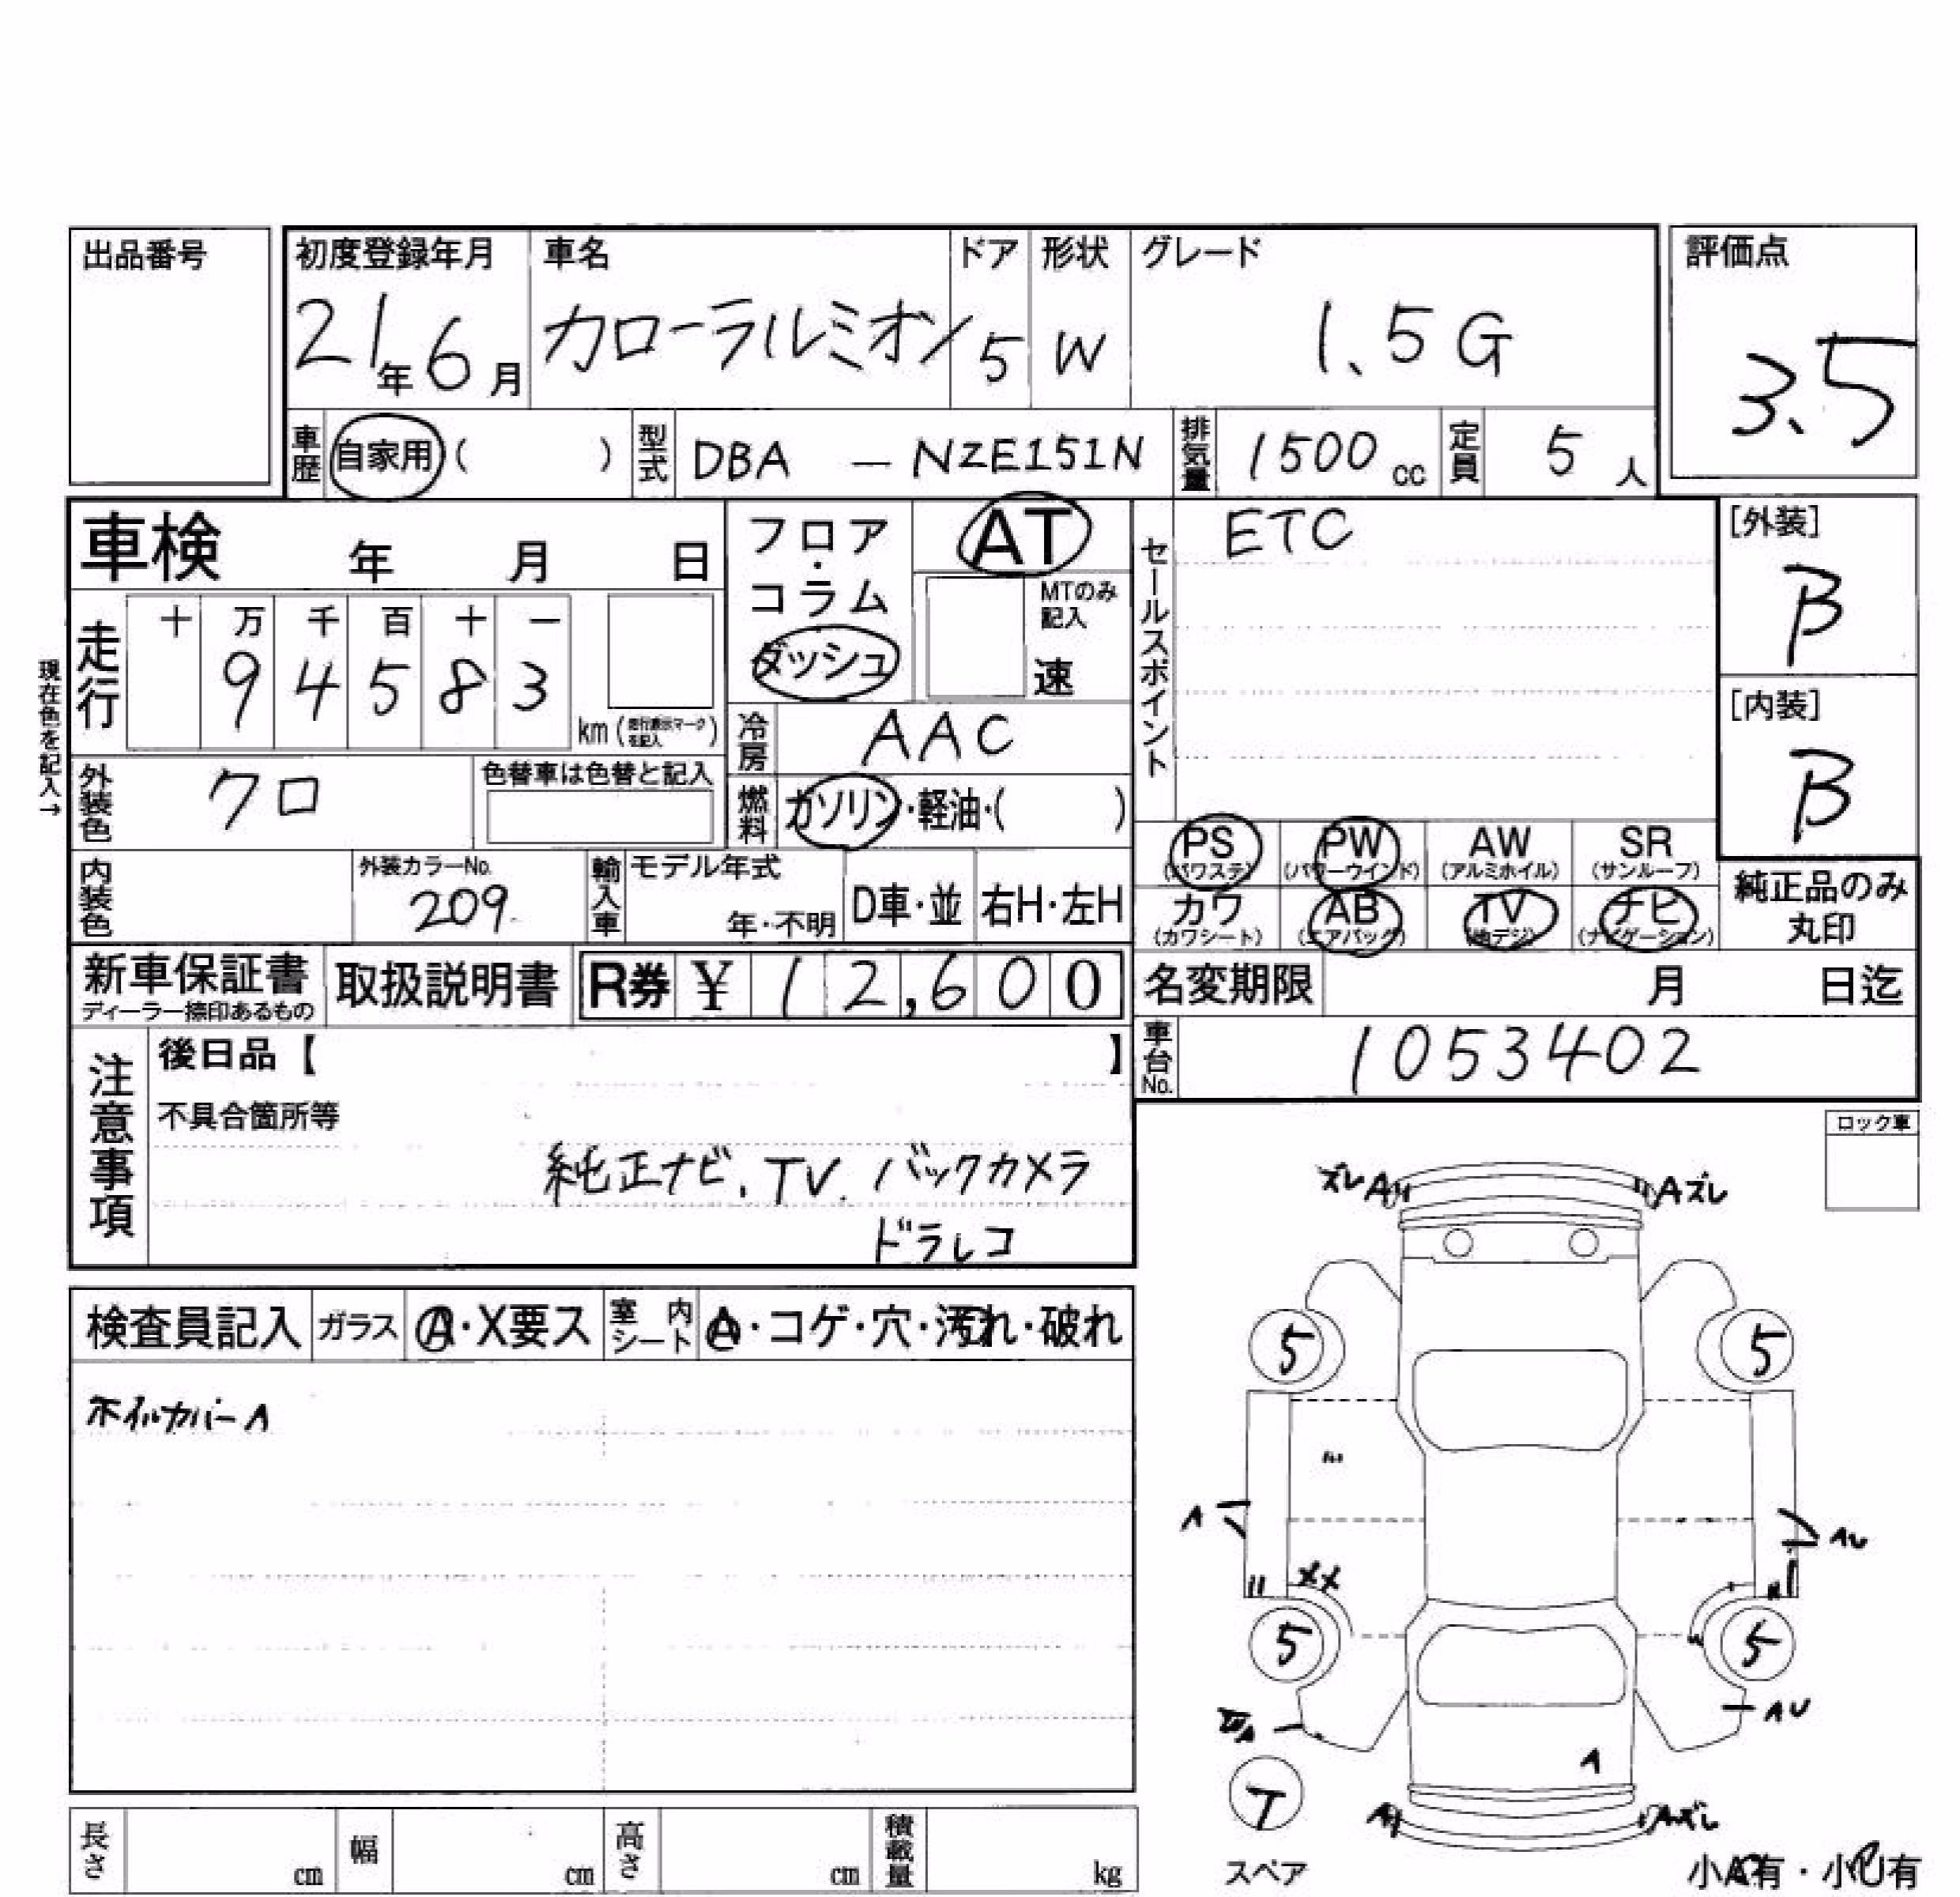 出品番号
初度登録年月 車名 ドア 形状 グレード 評価点
21年6月 カローラルミオン 5 W 1.5G 3.5
車歴 自家用( ) 型式 DBA - NZE151N 排気量 1500cc 定員 5人
車検 年 月 日
フロア・コラム ダッシュ
AT
MTのみ記入
速
セールスポイント ETC
[外装]
B
[内装]
B
現在色を記入→
走行 十 万 千 百 十 一
9 4 5 8 3
km(走行表示マークを記入)
冷房 AAC
外装色 クロ 色替車は色替と記入
燃料 ガソリン・軽油・( )
PS (パワステ) PW (パワーウインド) AW (アルミホイル) SR (サンルーフ)
カワ (カワシート) AB (エアバッグ) TV (地デジ) ナビ (ナビゲーション)
純正品のみ丸印
内装色 外装カラーNo. 209 輸入車 モデル年式 年・不明 D車・並 右H・左H
新車保証書 取扱説明書 R券 ¥12,600
ディーラー捺印あるもの
名変期限 月 日迄
車台No. 1053402
注意事項 後日品【 】
不具合箇所等
純正ナビ.TV.バックカメラ
ドラレコ
ロック車
ズレA Aズレ
検査員記入 ガラス A・X要ス 室内シート A・コゲ・穴・汚れ・破れ
ホイルカバーA
5 5
A AU
XX
5 5
AU
A
T
A Aズレ
スペア
小A有・小U有
長さ cm 幅 cm 高さ cm 積載量 kg